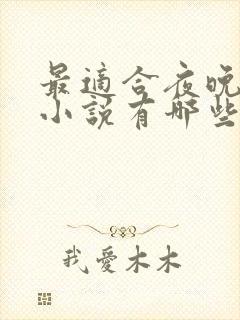 最適合夜晚
小說有哪些
我愛木木